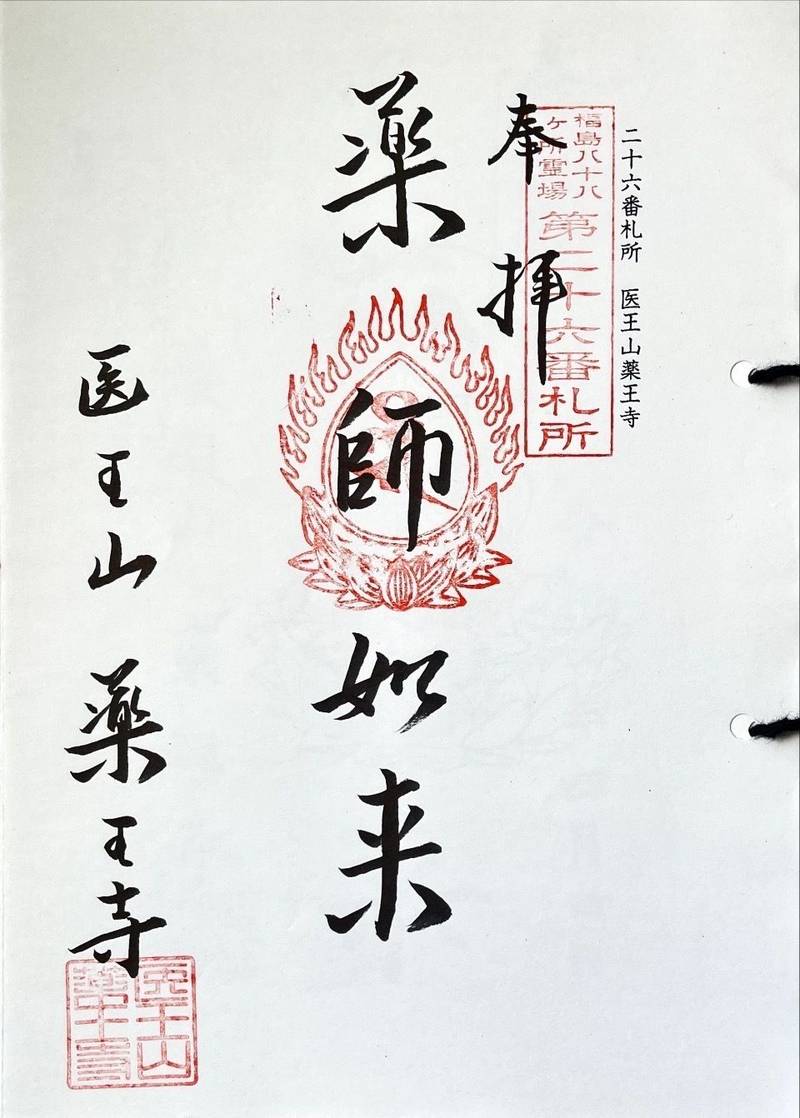 二十六番札所 医王山薬王寺
福島八十八
ケ所霊場
第二十六番札所
奉拝
薬師如来
医王山 薬王寺
医王山
薬王寺